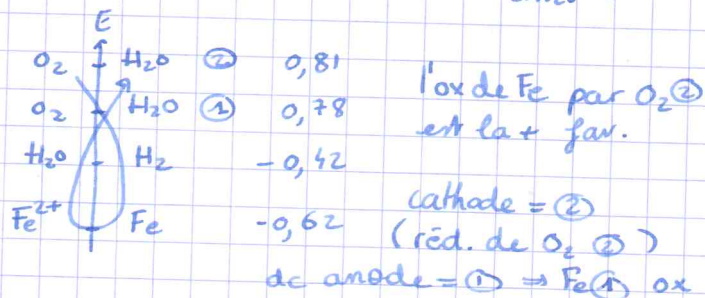 E
O₂ H₂O ② 0,81
O₂ H₂O ① 0,78
H₂O H₂ - 0,42
Fe²⁺ Fe -0,62
l'ox de Fe par O₂ ②
est la + fav.
cathode = ②
(réd. de O₂ ②)
dc anode = ① ⇒ Fe ① ox